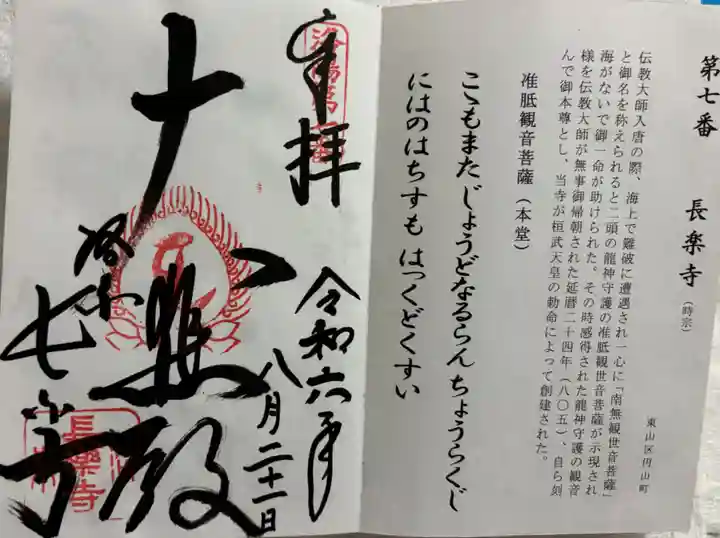 第七番 長楽寺（時宗）
東山区円山町
伝教大師入唐の際、海上で難破に遭遇され一心に「南無観世音菩薩」
と御名を称えられると二頭の龍神守護の准胝観世音菩薩が示現され
海がないで御一命が助けられた。その時感得された龍神守護の観音
様を伝教大師が無事御帰朝された延暦二十四年（八〇五）、自ら刻
んで御本尊とし、当寺が桓武天皇の勅命によって創建された。
准胝観音菩薩（本堂）
こゝもまたじょうどなるらん ちょうらくじ
にはのはちすも はっくどくすい
奉拝
令和六年
八月二十一日
長樂寺